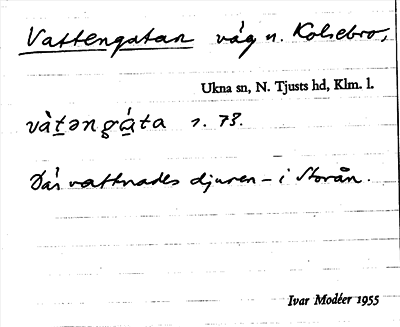 Vattengatan väg n. Kolsebro,
Ukna sn, N. Tjusts hd, Klm. l.
s. 73.
Där vattnades djuren – i Storån.
Ivar Modéer 1955